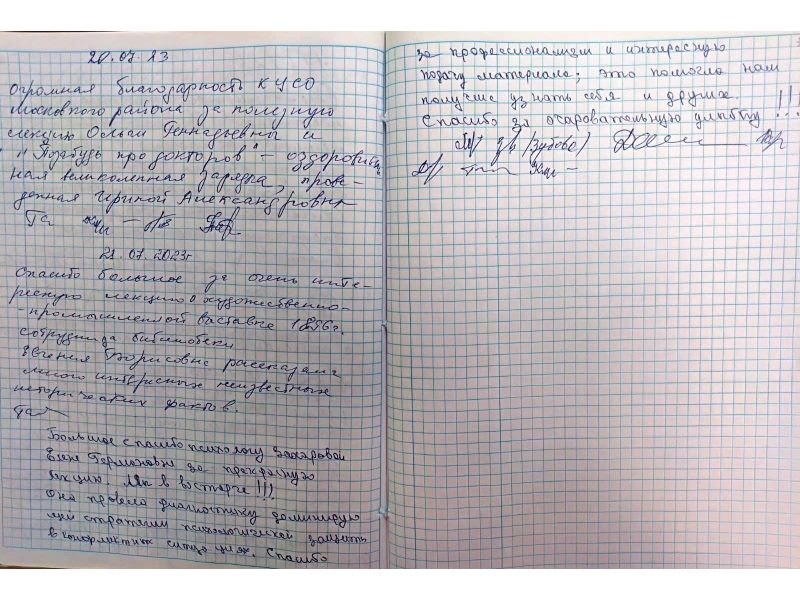 20.07.23
Огромная благодарность КЦСО
Московского района за полезную
лекцию Ольги Геннадьевны и
"Позабудь про докторов" - оздоровитель
ная великолепная зарядка, прове-
денная Ириной Александровны
21.07.2023г
Спасибо большое за очень инте-
ресную лекцию о художественно-
-промышленной выставке 1896г.
сотрудница библиотеки
Евгения Борисовна рассказала
много интересных неизвестных
исторических фактов.
Большое спасибо психологу Захаровой
Елене Германовне за прекрасную
лекцию. Мы в восторге!!!
Она провела диагностику доминирую
щей стратегии психологической защиты
в конфликтных ситуациях. Спасибо
за профессионализм и интересную
подачу материала; это помогло нам
получше узнать себя и других.
Спасибо за очаровательную улыбку!!!
(Зубова)